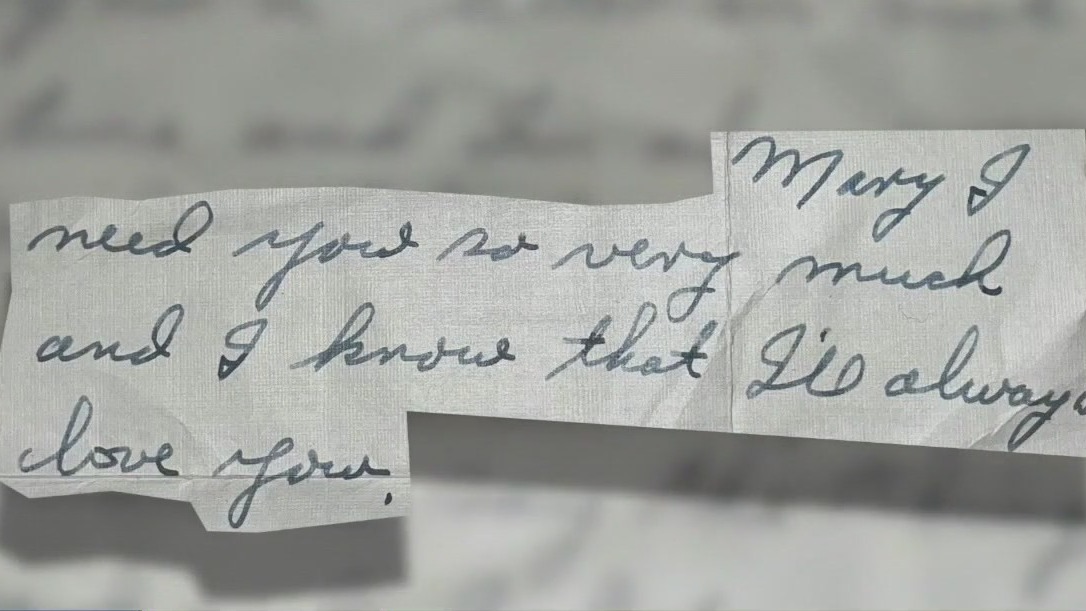 Mary I
need you so very much
and I know that I'll always
love you.